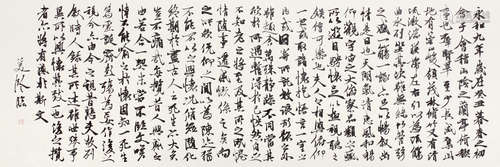 永和九年歲在癸丑暮春之初
會于會稽山陰之蘭亭脩禊
事也群賢畢至少長咸集此地
有崇山峻領茂林脩竹又有清流激
湍暎帶左右引以為流觴曲
水列坐其次雖無絲竹管弦
之盛一觴一詠亦足以暢敘幽
情是日也天朗氣清惠風和暢
仰觀宇宙之大俯察品類之盛
所以遊目騁懷足以極視聽之娛
信可樂也夫人之相與俯仰
一世或取諸懷抱悟言一室之
內或因寄所託放浪形骸之外
雖趣舍萬殊靜躁不同當其欣
於所遇暫得於己快然自足
不知老之將至及其所之既惓
情隨事遷感慨係之矣向之
所欣俛仰之間以為陳迹猶
不能不以之興懷況脩短隨化
終期於盡古人云死生亦大矣
豈不痛哉每攬昔人興感之
由若合一契未嘗不臨文嗟悼不能
喻之於懷固知一死生
為虛誕齊彭殤為妄作後之
視今亦由今之視昔悲夫故列
敘時人錄其所述雖世殊事
異所以興懷其致一也後之攬
者亦將有感於斯文
臨